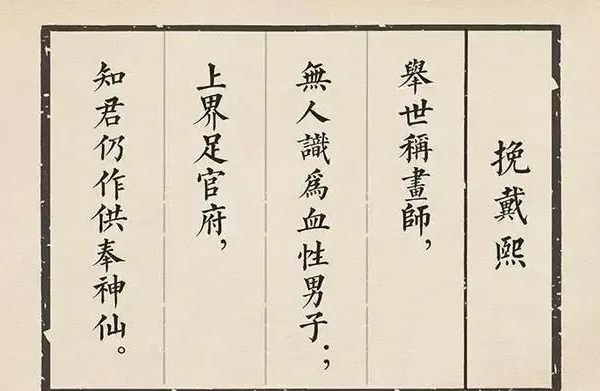 挽戴熙
舉世稱畫師，
無人識為血性男子；
上界足官府，
知君仍作供奉神仙。